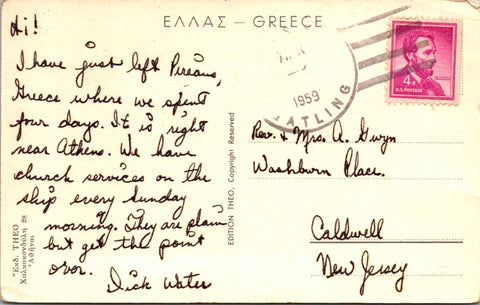 ΕΛΛΑΣ – GREECE
Hi!
I have just left Pireaus,
Greece where we spent
four days. It is right
near Athens. We have
church services on the
ship every Sunday
morning. They are plain
but get the point
over.
Dick Water
Ἐκδ. THEO
Χαλκοκονδύλη 28
Ἀθῆναι
EDITION THEO, Copyright Reserved
1959
GATLING
4¢
U.S. POSTAGE
Rev. & Mrs. A. Gwyn
Washburn Place.
Caldwell
New Jersey